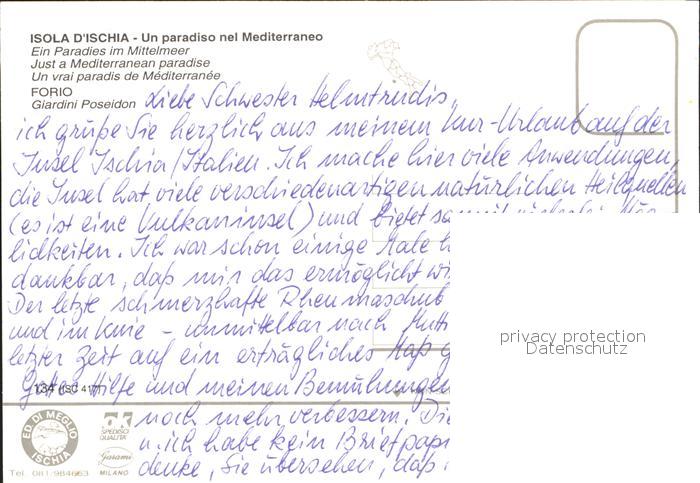 ISOLA D'ISCHIA - Un paradiso nel Mediterraneo
Ein Paradies im Mittelmeer
Just a Mediterranean paradise
Un vrai paradis de Méditerranée
FORIO
Giardini Poseidon
Liebe Schwester Helmtrudis,
ich grüße Sie herzlich aus meinem Kur-Urlaub auf der
Insel Ischia/Italien. Ich mache hier viele Anwendungen,
die Insel hat viele verschiedenartigen natürlichen Heilquellen
(es ist eine Vulkaninsel) und bietet
lidkeiten. Ich war schon einige Male
dankbar, daß mir das ermöglicht
Der letzte schmerzhafte Rheumaschub
und im Knie - unmittelbar nach
letzter Zeit auf ein erträgliches
Gottes Hilfe und meinen Bemühungen
134 (ISC 417)
noch mehr verbessern. Die
u. ich habe kein Briefpapi
denke, Sie übersehen, daß
privacy protection
Datenschutz
ED. DI MEGLIO
ISCHIA
Tel. 081/984663
ak
SPEDISCI
QUALITA'
Garami
MILANO